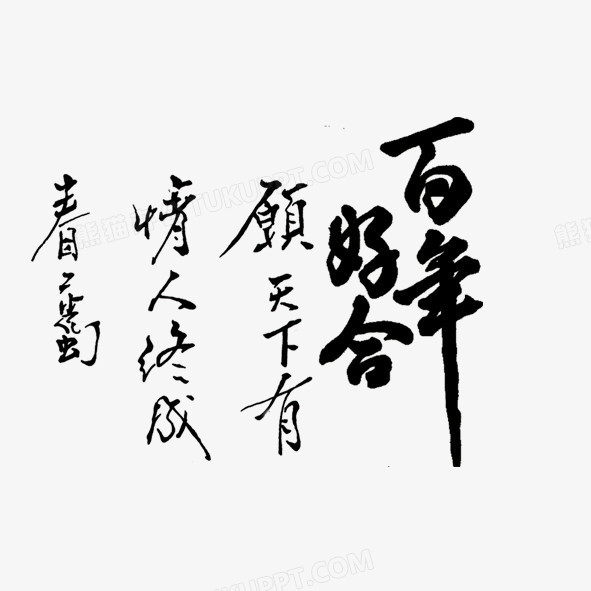 百年
好合
願天下有
情人终成
眷
熊猫办公 TUKUPPT.COM
TUKUPPT.COM